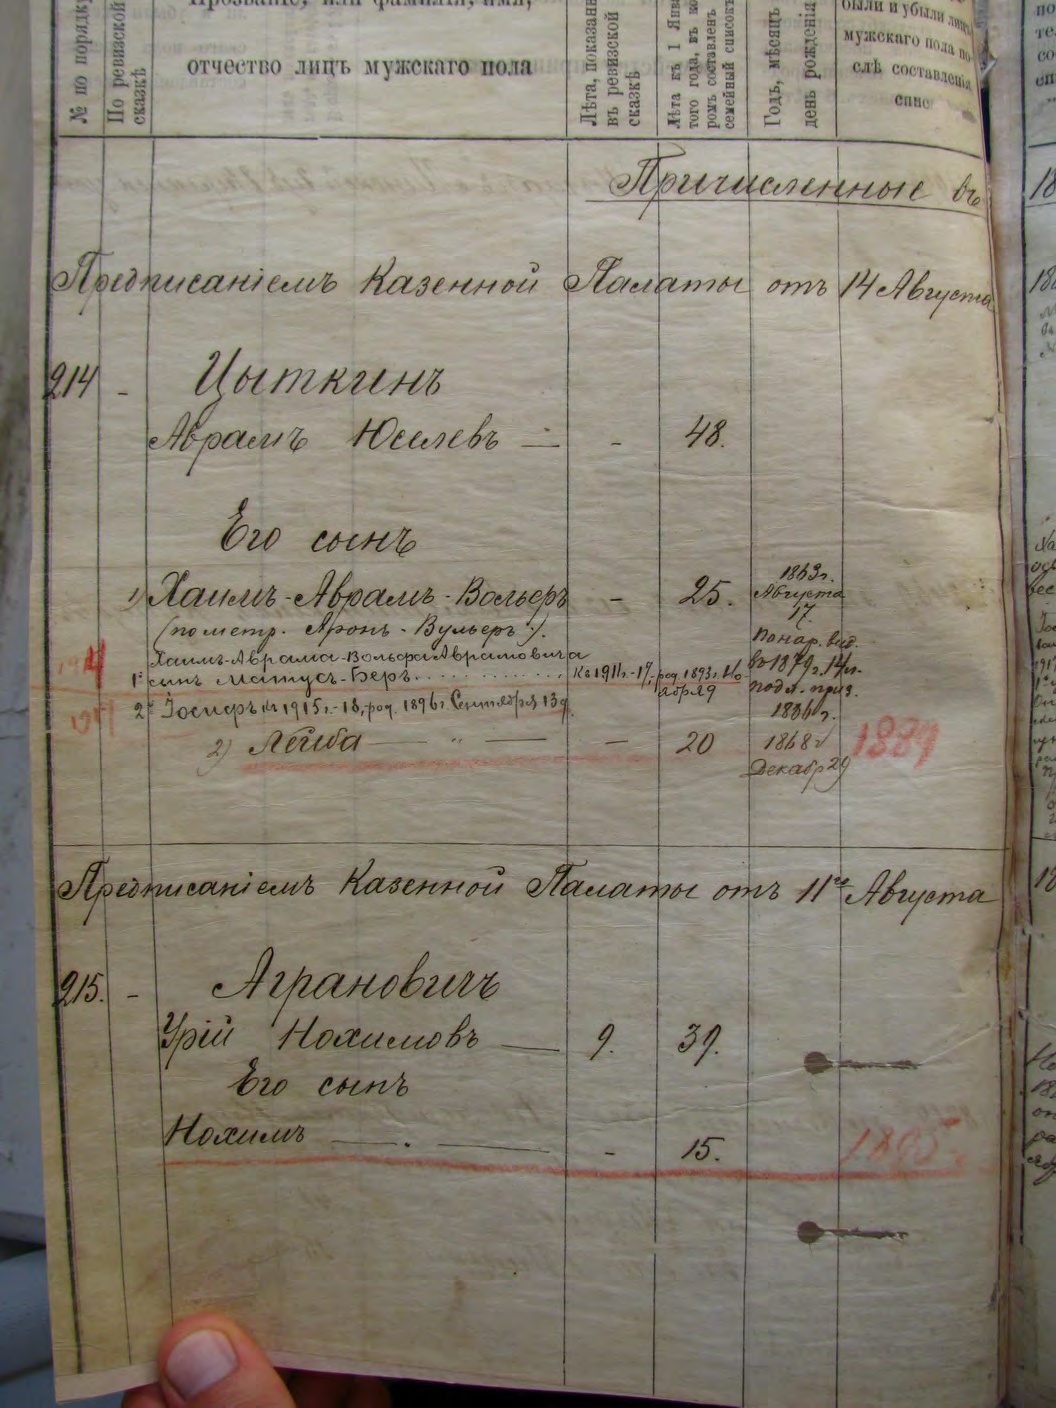 Прозваніе, или фамилія, имя,
отчество лицъ мужскаго пола
№ по порядку
По ревизской
сказкѣ
Лѣта, показан
въ ревизской
сказкѣ
Лѣта къ 1 Янва
того года, въ ко
ромъ составленъ
семейный списокъ
Годъ, мѣсяцъ
день рожденія
были и убыли лицъ
мужскаго пола по-
слѣ составленія
спис
Причисленные въ
Предписаніемъ Казенной Палаты отъ 14 Августа
214 - Цыткинъ
Аврамъ Юселевъ - - 48.
Его сынъ
1) Хаимъ-Аврамъ-Вольфъ - 25. 1863г. Августа 17.
(по метр. Аронъ-Вульфъ).
Хаимъ-Аврама-Вольфа Аврамовича
1й сынъ Матусъ-Беръ к 1911г.-17, род. 1893г.
2й Іосифъ к 1915г.-18, род. 1896г. Сентября 13
по нар. вид.
въ 1879г. 14л.
подл. приз.
1886г.
2) Лейба - 20 1868г Декабр 29 1889
Предписаніемъ Казенной Палаты отъ 11го Августа
215. - Аграновичъ
Урій Нохимовъ 9. 39.
Его сынъ
Нохимъ - 15. 1895.